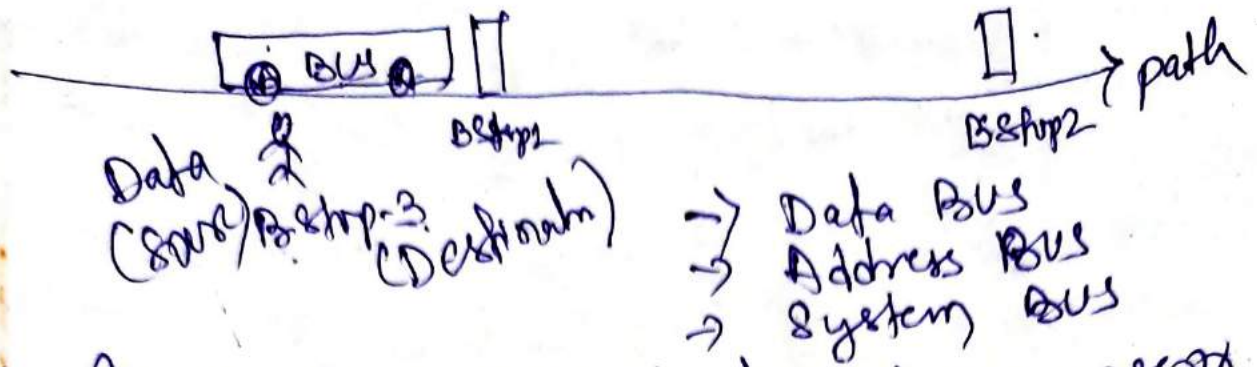 BUS
path
BStop1
BStop2
Data
(Source) B.Stop-3
(Destinatn)
→ Data BUS
→ Address BUS
→ System BUS